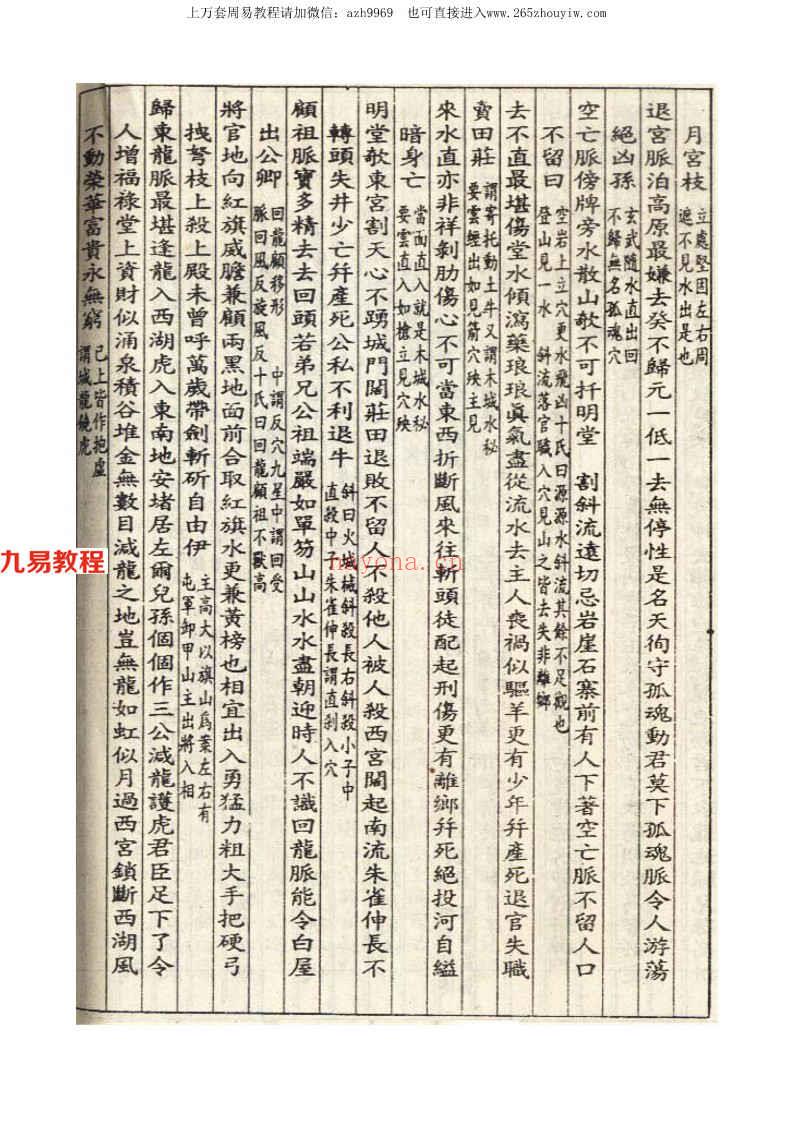 上万套周易教程请加微信：azh9969 也可直接进入www.265zhouyiw.com
月宮枝 立處堅固左右周遮不見水出是也
退宮脈泊高原最嫌去癸不歸元一低一去無停性是名天徇守孤魂動君莫下孤魂脈令人游蕩
絕凶孫 玄武隨水直出回不歸無名孤魂穴
空亡脈傍牌旁水散山欹不可扦明堂 割斜流遠切忌岩崖石寨前有人下著空亡脈不留人口
不留曰 空岩上立穴更水飛凶十氏曰源源水斜流其餘不足觀也登山見一水 斜流落官驗入穴見山之皆去失非離鄉
去不直最堪傷堂水傾瀉藥琅琅眞氣盡從流水去主人喪禍似驅羊更有少年幷產死退官失職
賣田莊 謂寄托動土牛又謂木城水秘要雲經出如見箭穴殃主見
來水直亦非祥剝肋傷心不可當東西折斷風來往斬頭徒配起刑傷更有離鄉幷死絕投河自縊
暗身亡 當面直入就是木城水秘要雲直入如槍立見穴殃
明堂欹東宮割天心不踴城門闊莊田退敗不留人不殺他人被人殺西宮闊起南流朱雀伸長不
轉頭失井少亡幷產死公私不利退牛 斜曰火城械斜殺長右斜殺小子中直殺中子朱雀伸長謂直刹入穴
顧祖脈寶多精去去回頭若弟兄公祖端嚴如單笏山山水水盡朝迎時人不識回龍脈能令白屋
出公卿 回龍顧移形 中謂反穴九星中謂回受脈回風反旋風反十氏曰回龍顧祖不歎高
將官地向紅旗威膽兼顧兩黑地面前合取紅旗水更兼黃榜也相宜出入勇猛力粗大手把硬弓
拽弩枝上殺上殿未曾呼萬歲帶劍斬斫自由伊 主高大以旗山爲案左右有屯軍卸甲山主出將入相
歸東龍脈最堪逢龍入西湖虎入東南地安堵居左爾兒孫個個作三公減龍護虎君臣足下了令
人增福祿堂上資財似涌泉積谷堆金無數目減龍之地豈無龍如虹似月過西宮鎖斷西湖風
不動榮華富貴永無窮 已上皆作抱虛謂城龍饒虎
九易教程
nayona.cn